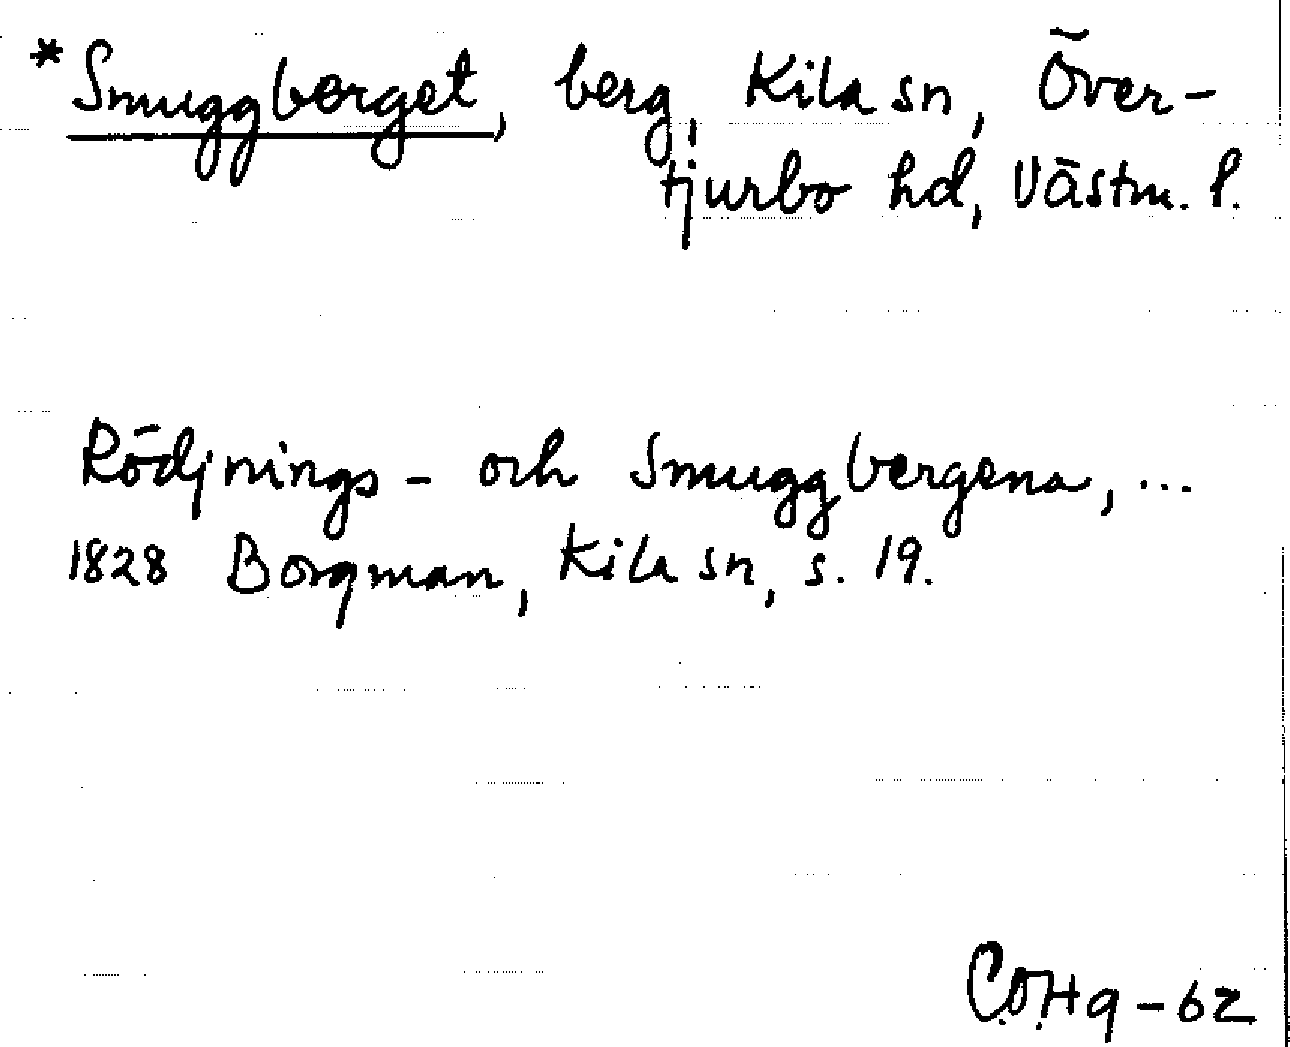 *Smuggberget, berg, Kila sn, Över-
tjurbo hd, Västm. l.
Rödjnings- och Smuggbergena, ...
1828 Borgman, Kila sn, s. 19.
C.O.Hq-62